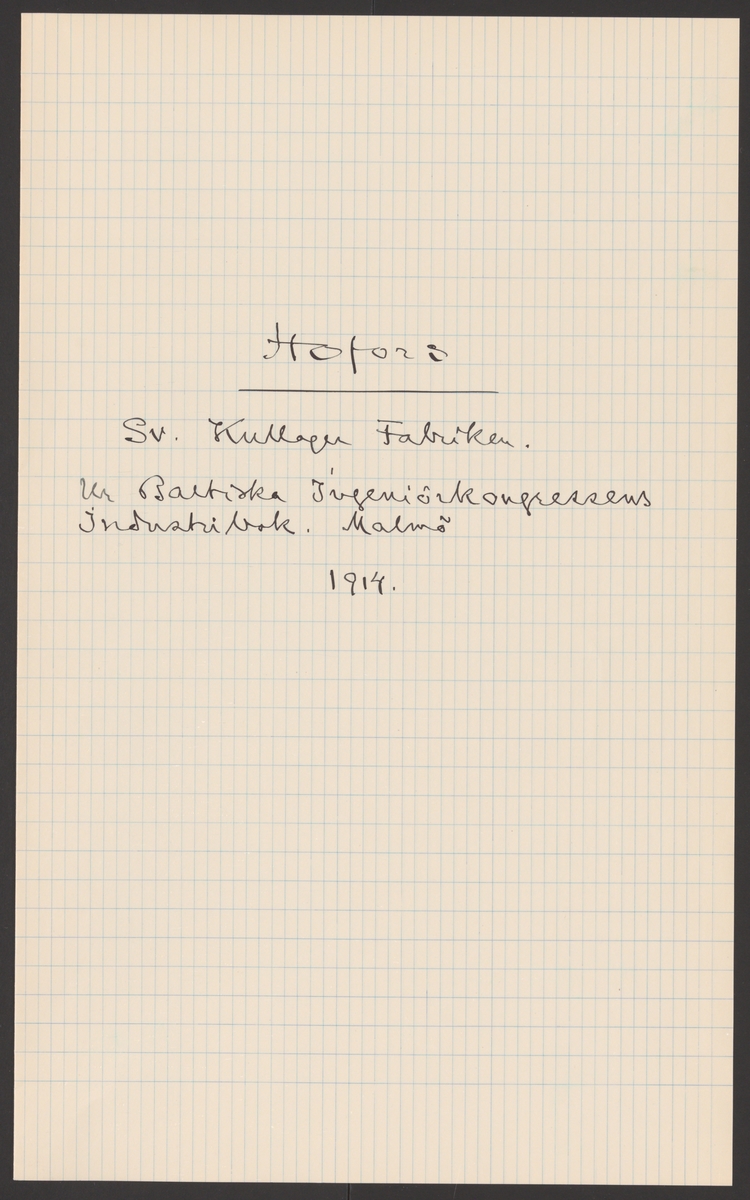 Hofors
Sv. Kullager Fabriken.
Ur Baltiska Ingeniörkongressens
Industribok. Malmö
1914.